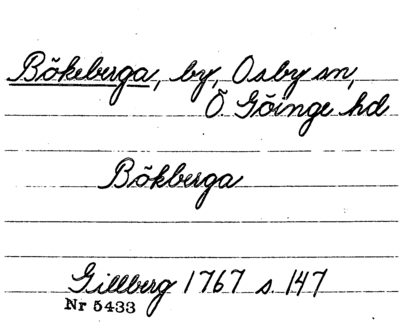 Bökeberga, by, Osby sn,
Ö Göinge hd
Bökberga
Gillberg 1767 s. 147
Nr 5433